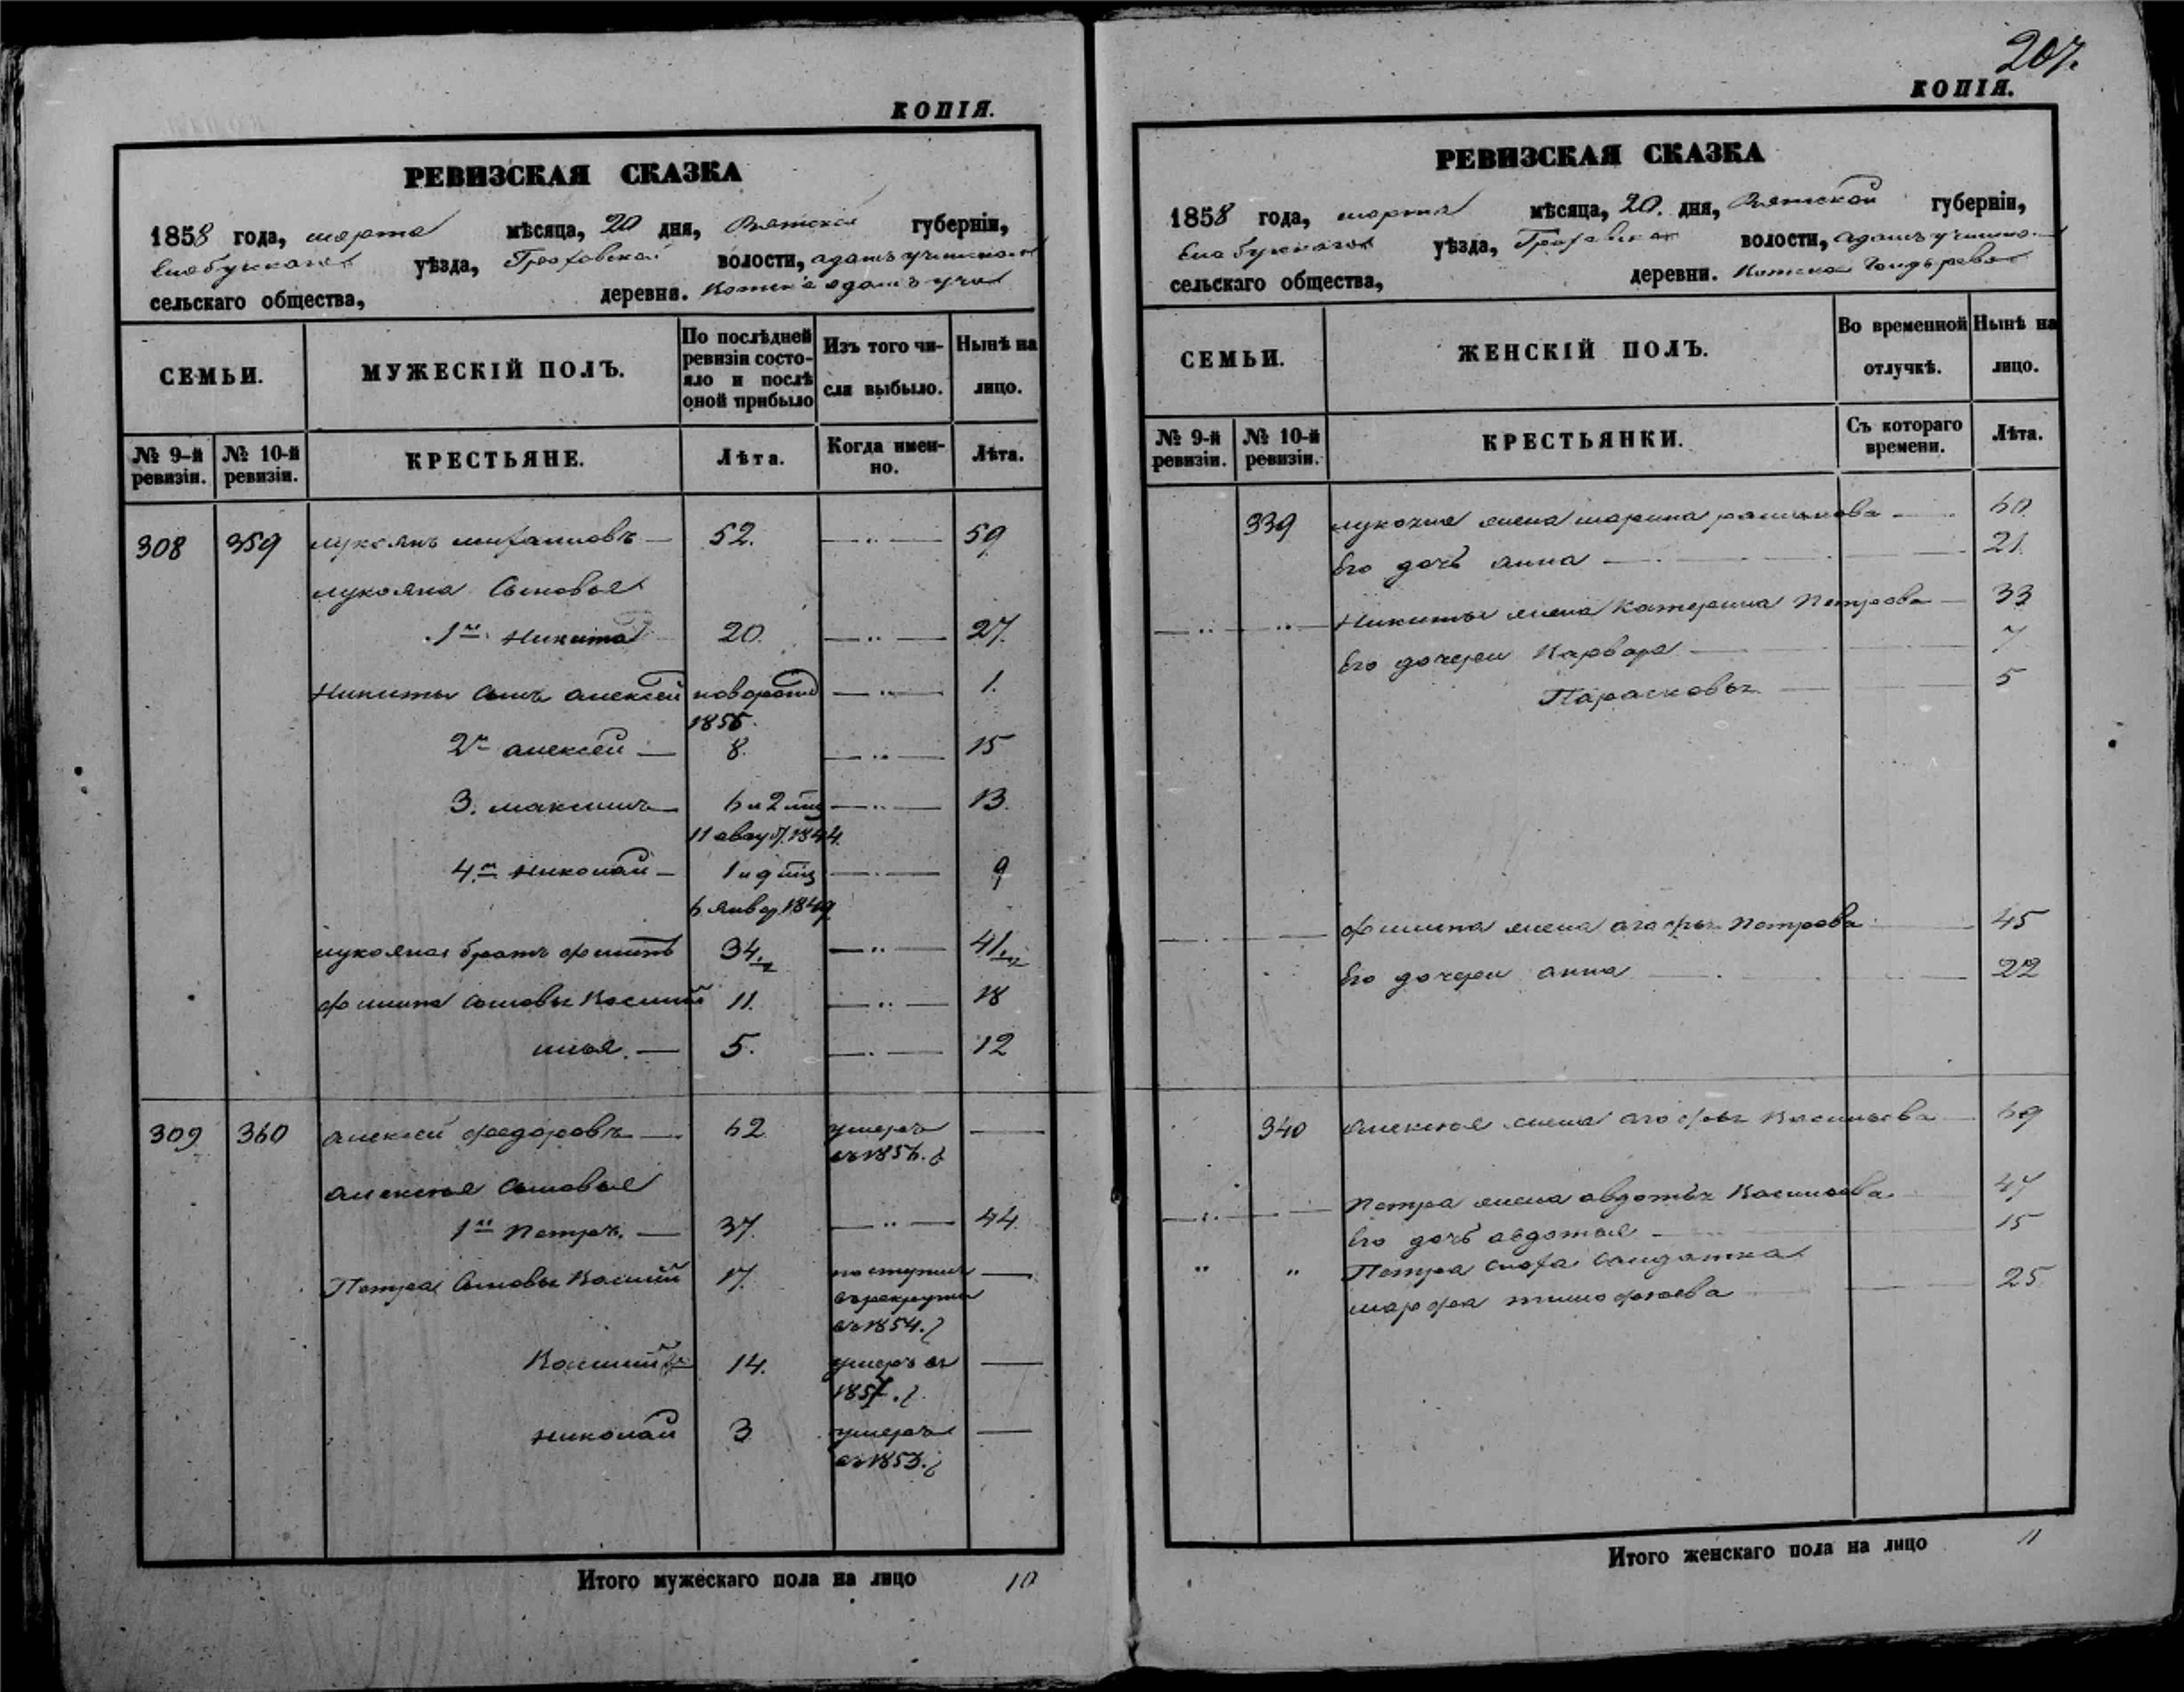 КОПІЯ.
РЕВИЗСКАЯ СКАЗКА
1858 года, марта мѣсяца, 20 дня, Вятской губерніи,
Елабужскаго уѣзда, Граховской волости,
сельскаго общества, деревни.
СЕМЬИ.
МУЖЕСКІЙ ПОЛЪ.
По послѣдней ревизіи состояло и послѣ оной прибыло
Изъ того числа выбыло.
Нынѣ на лицо.
№ 9-й ревизіи.
№ 10-й ревизіи.
КРЕСТЬЯНЕ.
Лѣта.
Когда именно.
Лѣта.
308 359 Лукоянъ 52. 59
Лукояна Сыновья
1й Никита 20. 27.
Никиты сынъ Алексей 1.
185
2й Алексей 8. 15
3. Максимъ 6 и 2 мц 13.
11 авгу 1844
4й Николай 1 и 9 мц 9
6 янва 1849
Лукояна братъ Филипъ 34 41
Филипа сыновья Василий 11. 18
Илья. 5. 12
309 360 Алексей Федоровъ 62 умеръ
въ 1856. г
Алексея Сыновья
1й Петръ. 37. 44
Петра Сыновья Василий 17. поступил
въ рекруты
въ 1854. г
Василий 14. умеръ въ
1857. г.
Николай 3 умеръ
въ 1853. г
Итого мужескаго пола на лицо 10
207.
КОПІЯ.
РЕВИЗСКАЯ СКАЗКА
1858 года, марта мѣсяца, 20. дня, Вятской губерніи,
Елабужскаго уѣзда, Граховской волости,
сельскаго общества, деревни.
СЕМЬИ.
ЖЕНСКІЙ ПОЛЪ.
Во временной отлучкѣ.
Нынѣ на лицо.
№ 9-й ревизіи.
№ 10-й ревизіи.
КРЕСТЬЯНКИ.
Съ котораго времени.
Лѣта.
339 жена Марина 60
Его дочь Анна 21.
Никиты жена Катерина Петрова 33
Его дочери Варвара 7
Парасковья 5
Филипа жена Агафья Петрова 45
Его дочери Анна 22
340 Алексея жена Агафья Васильева 69
Петра жена Авдотья Васильева 47
Его дочь Авдотья 15
Петра сноха Салдатка
Марфа Тимофеева 25
Итого женскаго пола на лицо 11